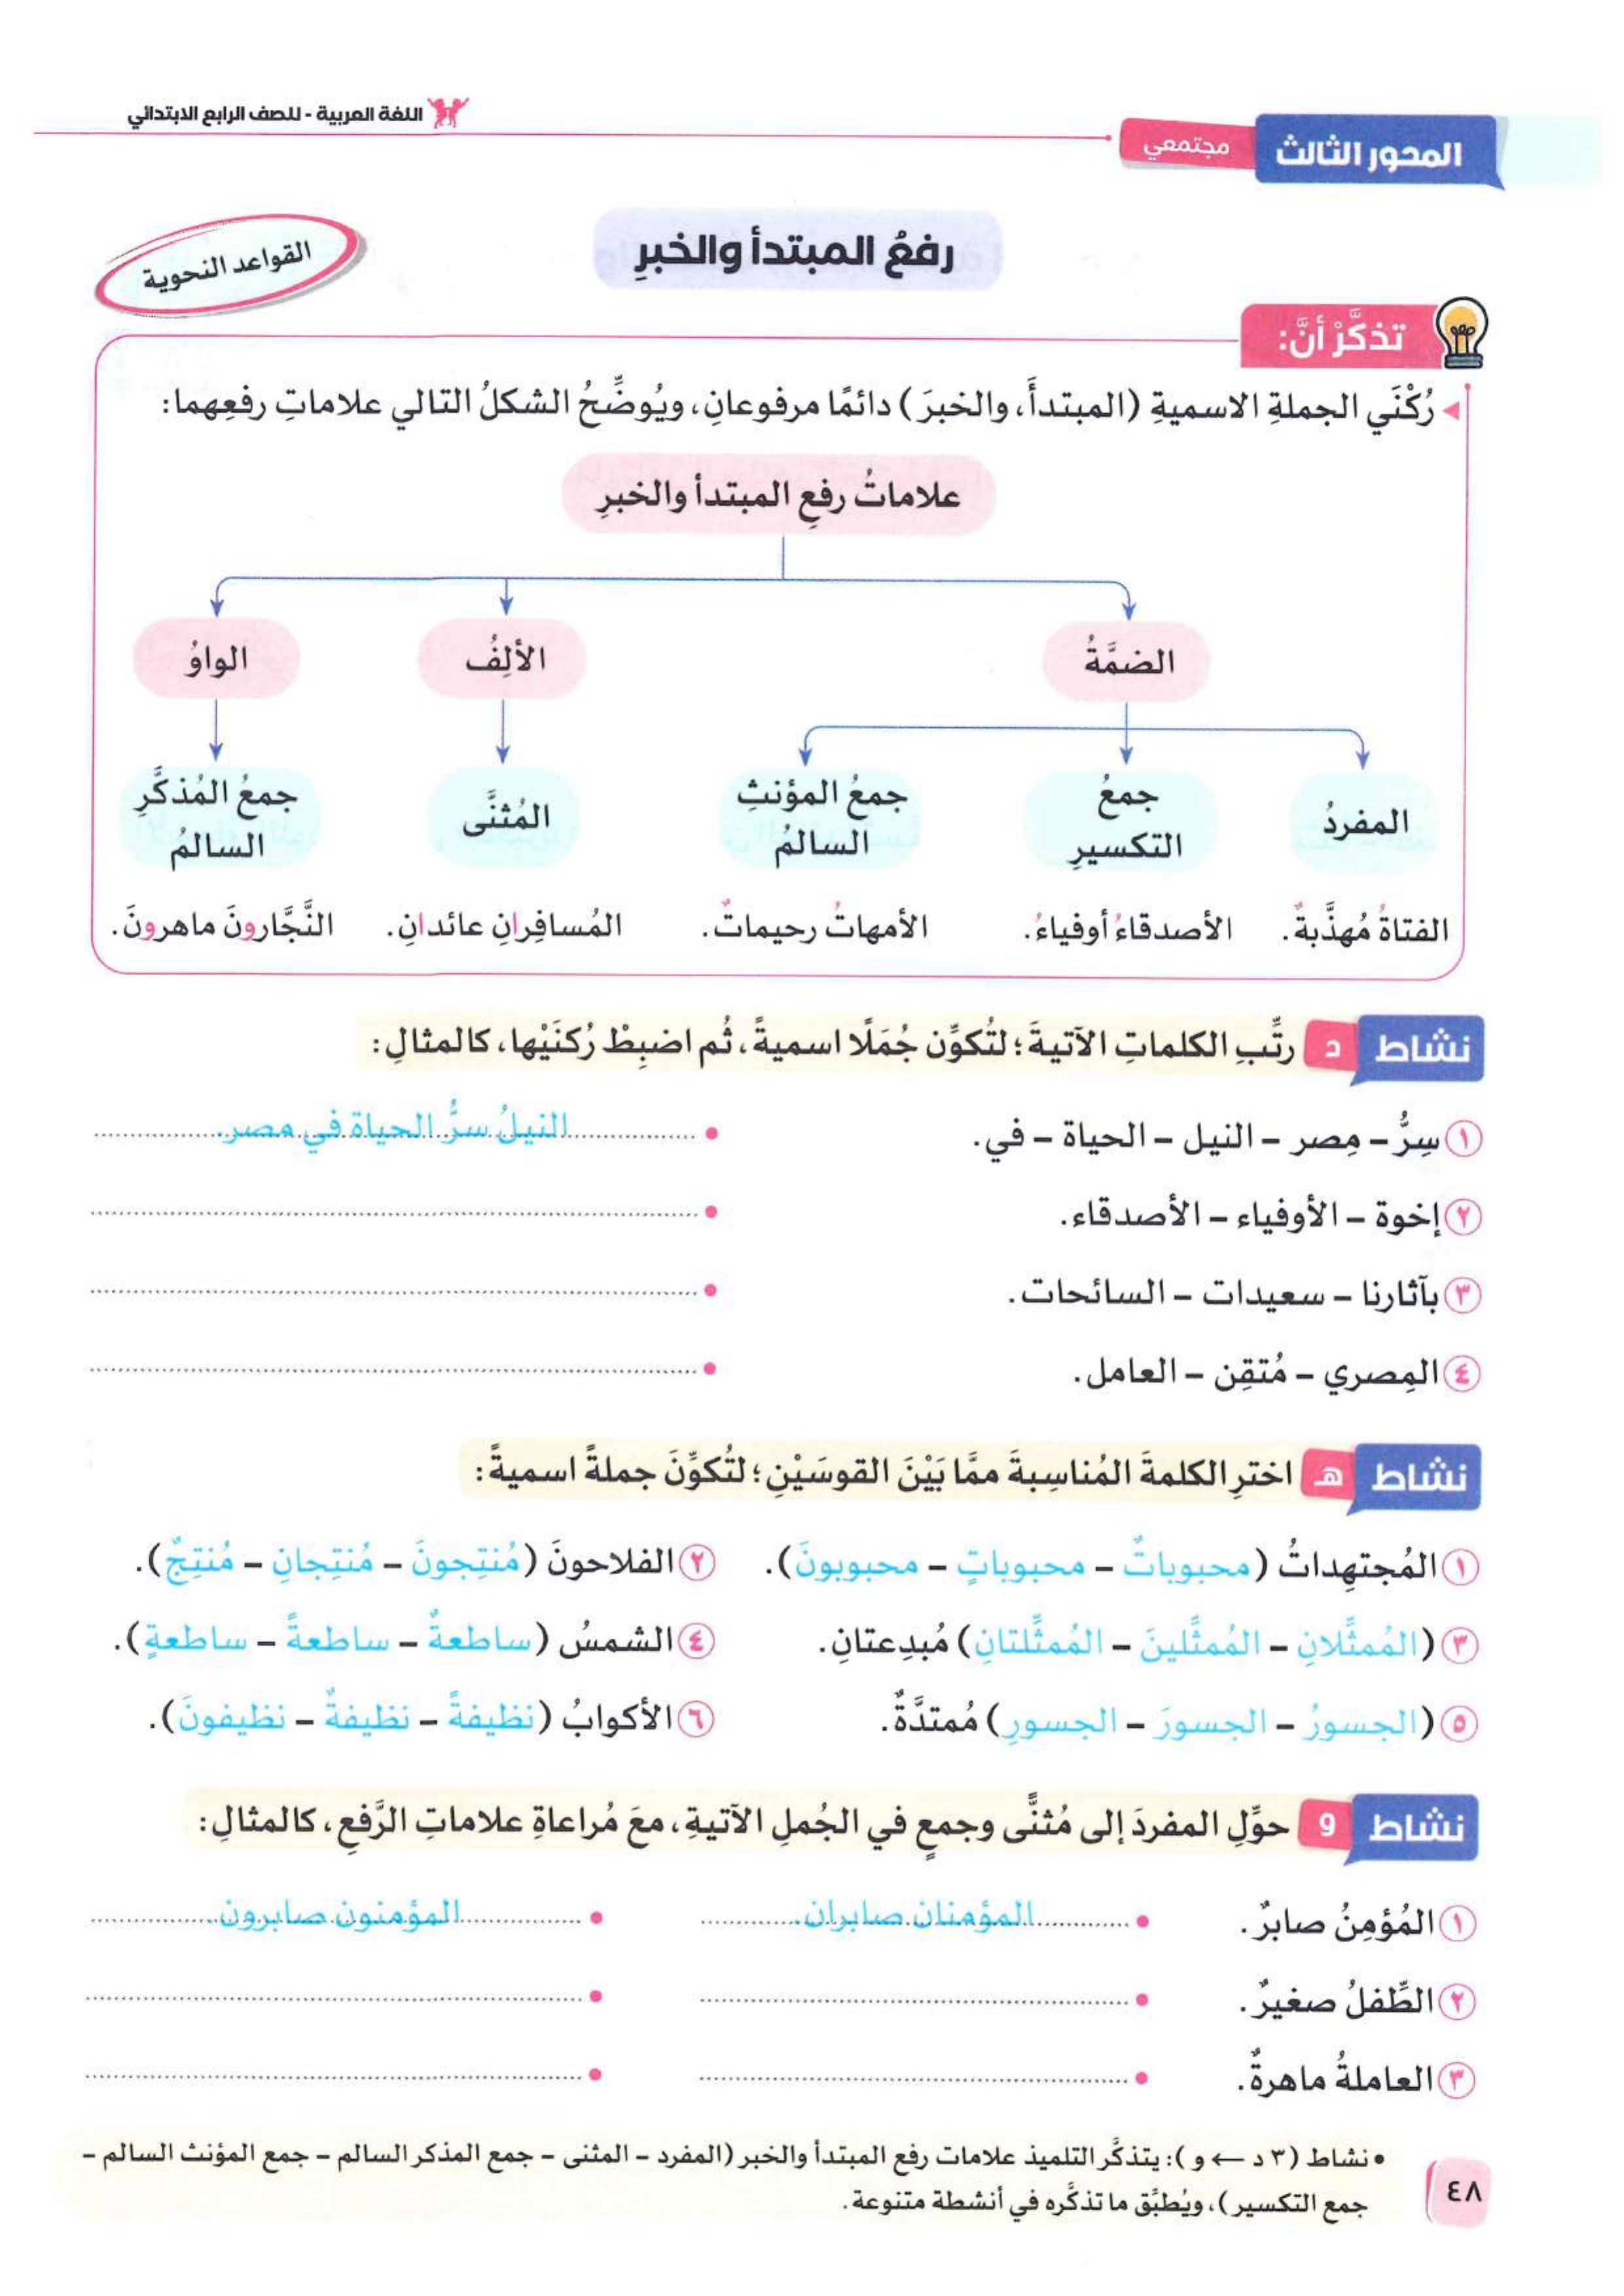 اللغة العربية - للصف الرابع الابتدائي
المحور الثالث
مجتمعي
رفعُ المبتدأ والخبرِ
القواعد النحوية
تذكَّرْ أنَّ:
رُكْنَي الجملةِ الاسميةِ (المبتدأَ، والخبرَ) دائمًا مرفوعانِ، ويُوضِّحُ الشكلُ التالي علاماتِ رفعِهما:
علاماتُ رفعِ المبتدأ والخبرِ
الضمَّةُ
الألِفُ
الواوُ
المفردُ
جمعُ التكسيرِ
جمعُ المؤنثِ السالمُ
المُثنَّى
جمعُ المُذكَّرِ السالمُ
الفتاةُ مُهذَّبةٌ.
الأصدقاءُ أوفياءُ.
الأمهاتُ رحيماتٌ.
المُسافِرانِ عائدانِ.
النَّجَّارونَ ماهرونَ.
نشاط د رتِّبِ الكلماتِ الآتيةَ؛ لتُكوِّن جُمَلًا اسميةً، ثُم اضبِطْ رُكنَيْها، كالمثالِ:
١ سِرُّ – مِصر – النيل – الحياة – في. النيلُ سرُّ الحياة في مصر.
٢ إخوة – الأوفياء – الأصدقاء.
٣ بآثارنا – سعيدات – السائحات.
٤ المِصري – مُتقِن – العامل.
نشاط هـ اخترِ الكلمةَ المُناسِبةَ ممَّا بَيْنَ القوسَيْنِ؛ لتُكوِّنَ جملةً اسميةً:
١ المُجتهِداتُ (محبوباتٌ – محبوباتٍ – محبوبونَ). ٢ الفلاحونَ (مُنتِجونَ – مُنتِجانِ – مُنتِجٌ).
٣ (المُمثِّلانِ – المُمثِّلينَ – المُمثِّلتانِ) مُبدِعتانِ. ٤ الشمسُ (ساطعةٌ – ساطعةً – ساطعةٍ).
٥ (الجسورُ – الجسورَ – الجسورِ) مُمتدَّةٌ. ٦ الأكوابُ (نظيفةً – نظيفةٌ – نظيفونَ).
نشاط و حوِّلِ المفردَ إلى مُثنًّى وجمعٍ في الجُملِ الآتيةِ، معَ مُراعاةِ علاماتِ الرَّفعِ، كالمثالِ:
١ المُؤمِنُ صابرٌ. المؤمنان صابران. المؤمنون صابرون.
٢ الطِّفلُ صغيرٌ.
٣ العاملةُ ماهرةٌ.
• نشاط (٣ د ← و): يتذكَّر التلميذ علامات رفع المبتدأ والخبر (المفرد – المثنى – جمع المذكر السالم – جمع المؤنث السالم –
جمع التكسير)، ويُطبِّق ما تذكَّره في أنشطة متنوعة.
٤٨